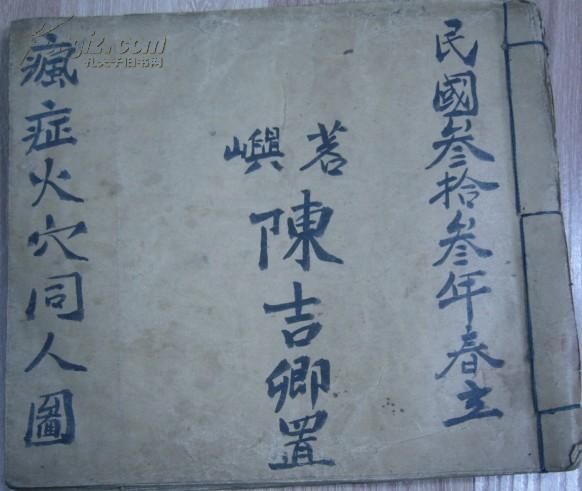 民國叁拾叁年春立
茗嶼
陳吉卿置
瘋症火穴同人圖
孔夫子旧书网